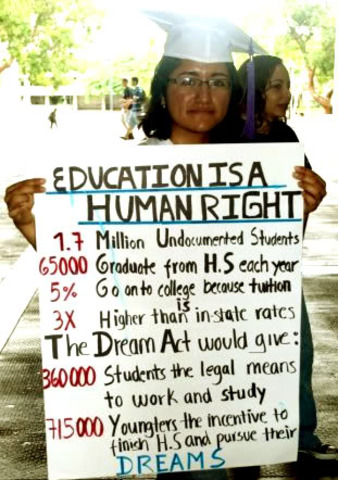 EDUCATION IS A
HUMAN RIGHT
1.7 Million Undocumented Students
65000 Graduate from H.S each year
5% Go on to college because tuition
is
3X Higher than in-state rates
The Dream Act would give:
360000 Students the legal means
to work and study
715000 Youngters the incentive to
finish H.S and pursue their
DREAMS